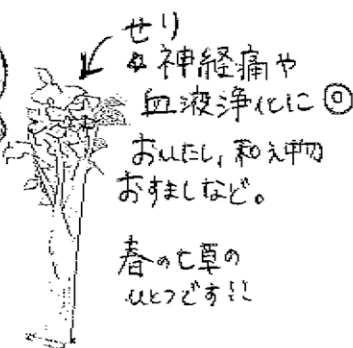 せり
神経痛や
血液浄化に◎
おひたし、和え物
おすましなど。
春の七草の
ひとつです!!